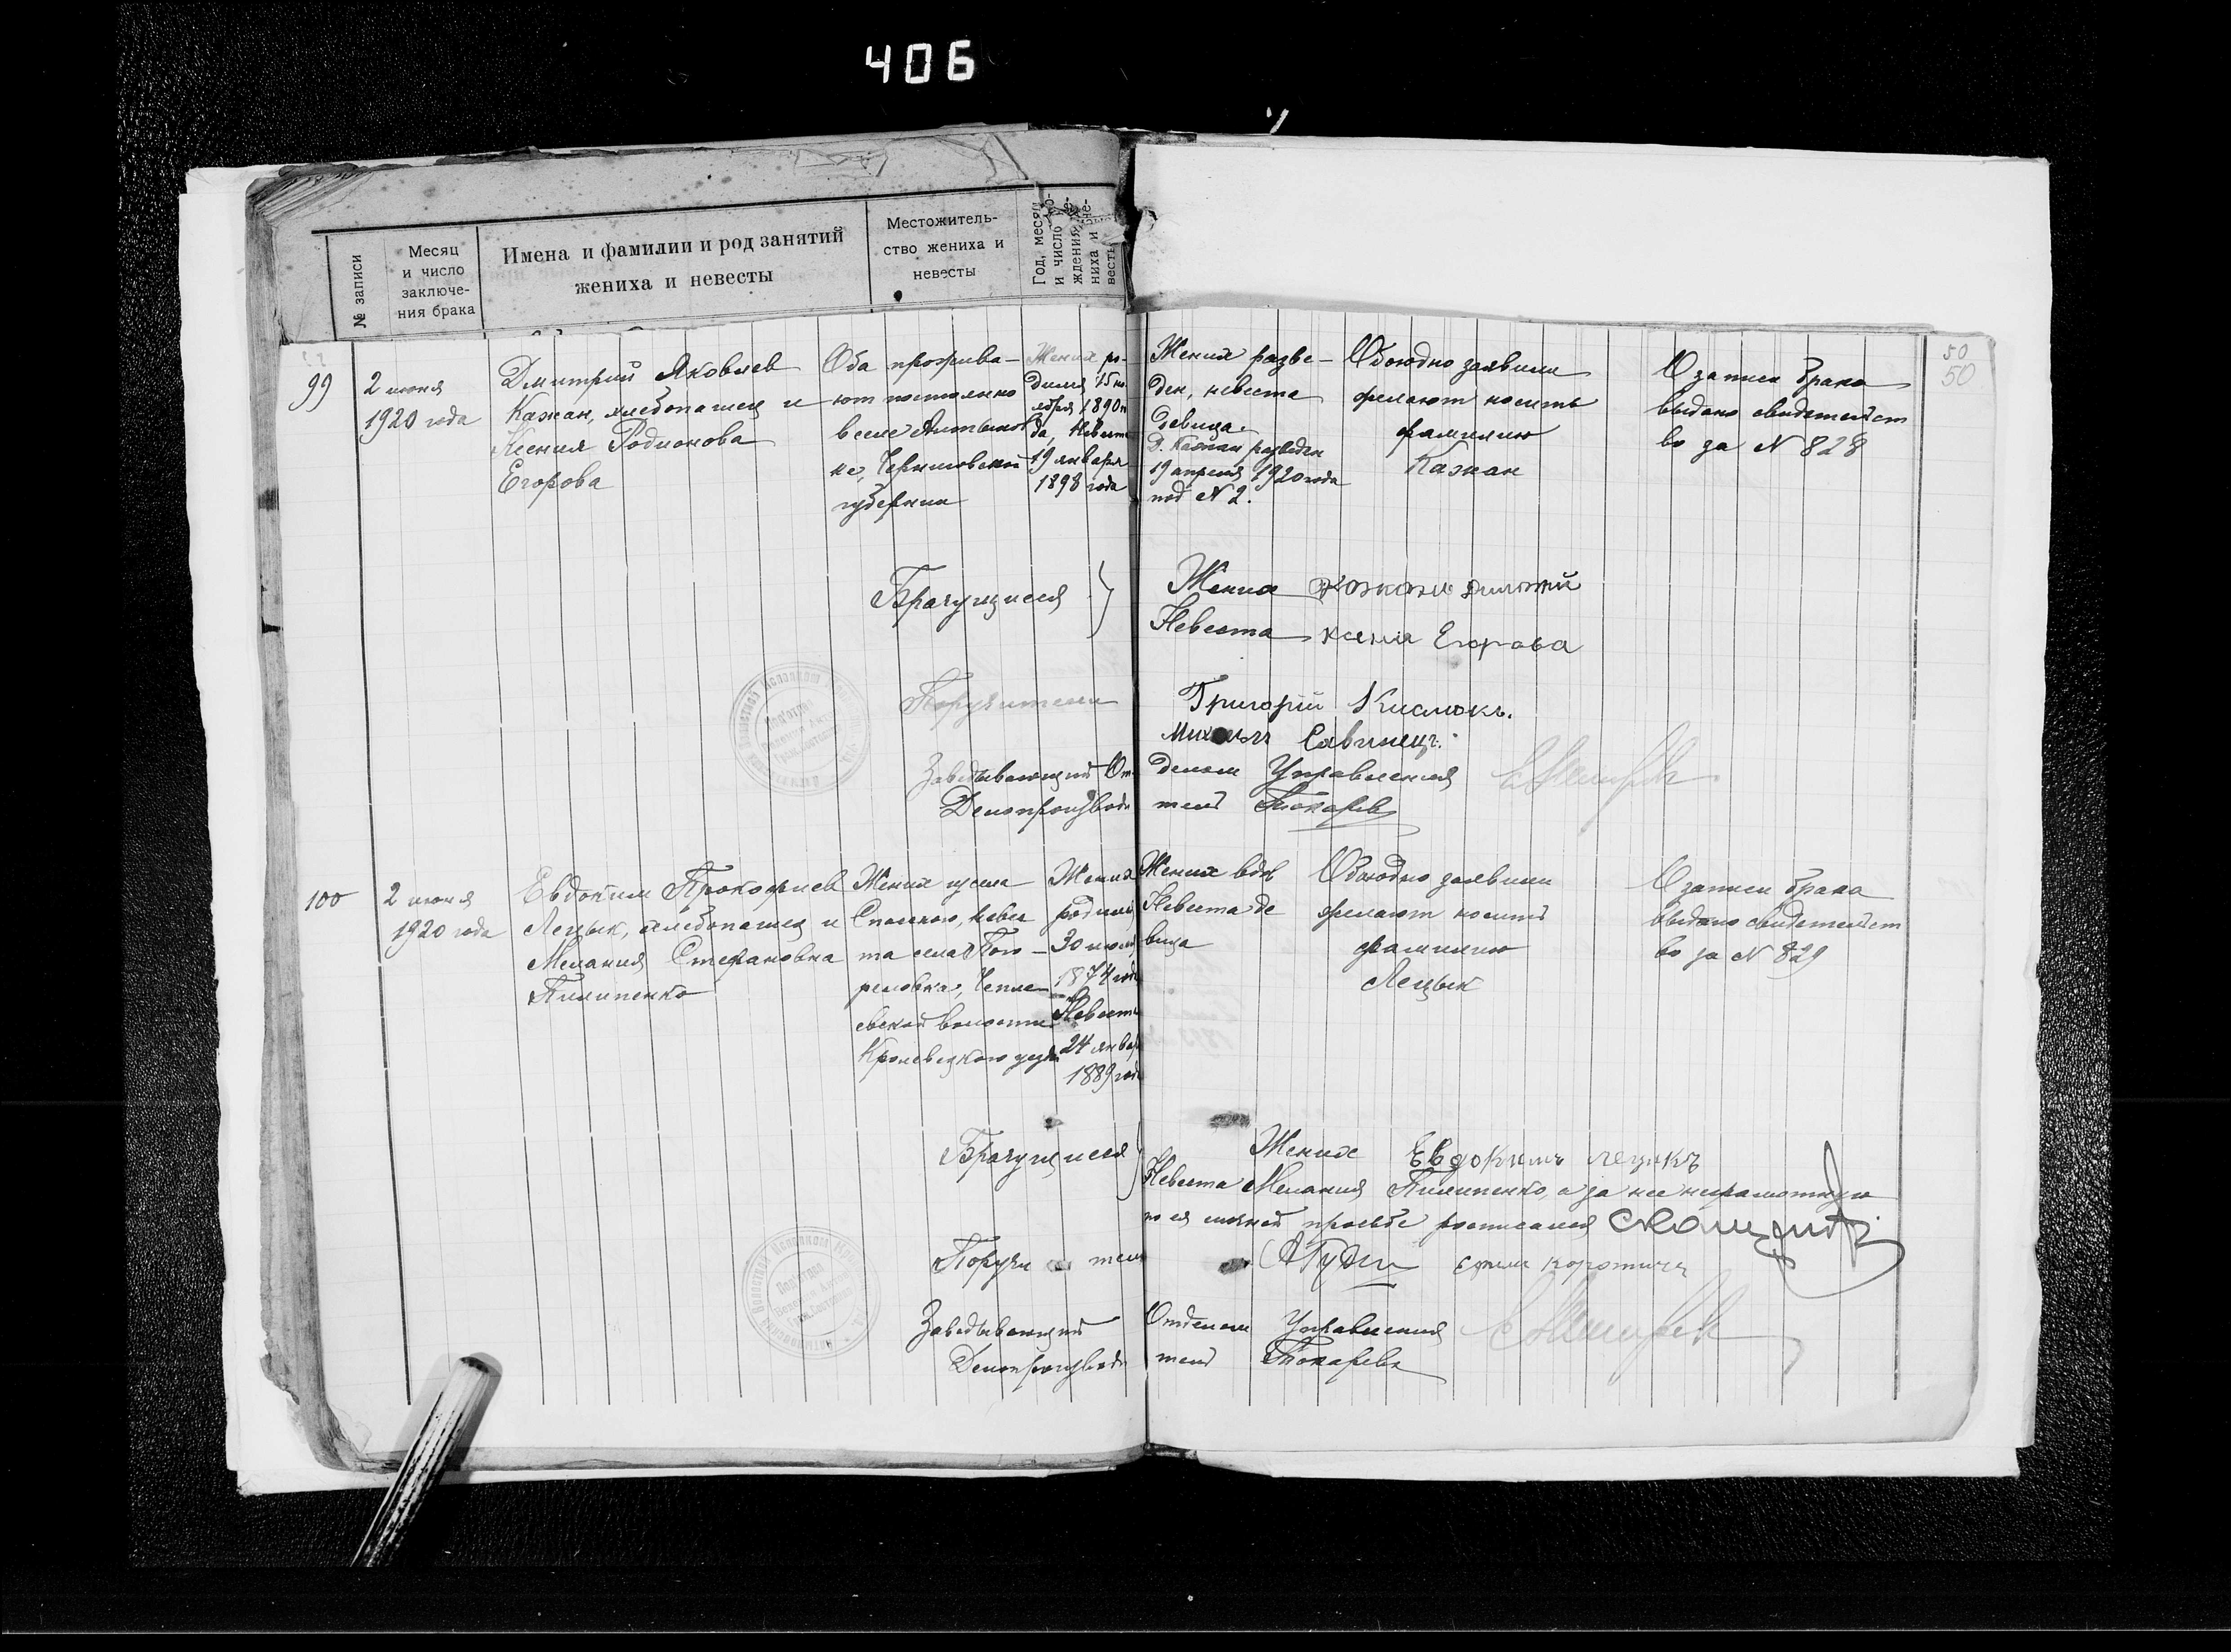 406
№ записи
Месяц
и число
заключе-
ния брака
Имена и фамилии и род занятий
жениха и невесты
Местожитель-
ство жениха и
невесты
Год, месяц
и число
ждения
ниха и
весты
50
50
99
2 июня
1920 года
Дмитрий Яковлев
Кажан, хлебопашец и
Ксения Родионова
Егорова
Оба прожива-
ют постоянно
в селе
ке, Черниговской
губернии
Жених ро-
дился 15
1890 г
да, Невеста
19 января
1898 года
Жених разве-
ден, невеста
девица.
Д. Кажан разведен
19 апреля 1920 года
под N 2.
Обоюдно заявили
желают носить
фамилию
Кажан
О записи брака
выдано свидетельст
во за N 828
Брачущиеся
Жених
Невеста Ксения Егорова
Поручители
Григорій Кислюкъ.
Савинецъ.
Заведывающий От
делом Управления
Делопроизводи
тель Токарев
100
2 июня
1920 года
Евдоким Прокофиев
Лецык, хлебопашец и
Мелания Стефановна
Пилипенко
Жених из села
Спаского, невес
та села Пого-
реловка, Чепле-
евской волости
Кролевецкого уезда
Жених
родился
30 июля
1874 года
Невеста
24 янва
1889 года
Жених вдов
Невеста де
вица
Обоюдно заявили
желают носить
фамилию
Лецык
О записи брака
выдано свидетельст
во за N 829
Брачущиеся
Жених Евдокимъ Лецикъ
Невеста Мелания Пилипенко, а за нее неграмотную
по ея личной просьбе росписался
Поручи тели
Заведывающий
Отделом Управления
Делопроизводи
тель Токарев